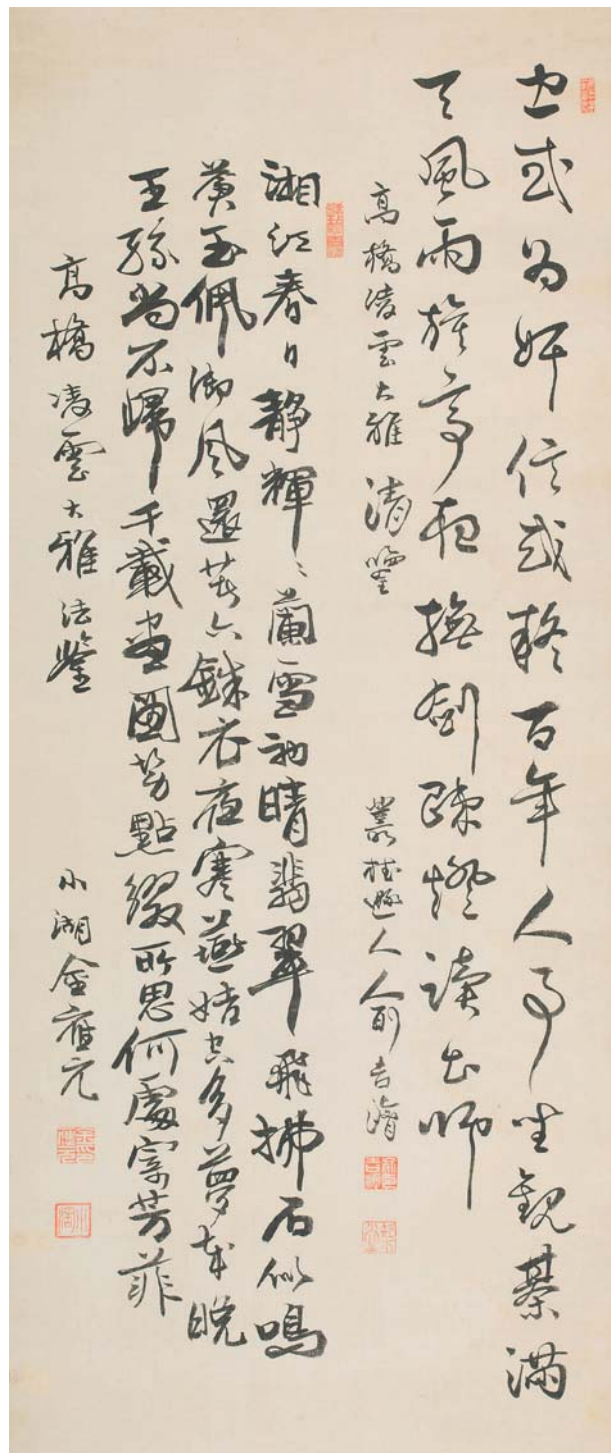 忠或為奸信或疑百年人事坐觀棊滿
天風雨旗亭夜撫劍疎燈讀出師
高橋凌雲大雅清鑒 叢桂遯人俞吉濬
湘江春日靜輝〻蘭雪初晴翡翠飛拂石似鳴
黃玉佩御風還著六銖衣夜寒燕姞空多夢歲晚
王孫尚不歸千載畫圖勞點綴所思何處寄芳菲
高橋凌雲大雅法鑒 小湖金應元